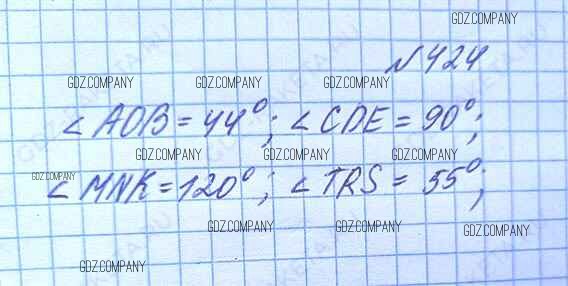 GDZ.COMPANY
№424
GDZ.COMPANY GDZ.COMPANY GDZ.COMPANY
∠AOB = 44°; ∠CDE = 90°;
GDZ.COMPANY GDZ.COMPANY GDZ.COMPANY
∠MNK = 120°; ∠TRS = 55°;
GDZ.COMPANY GDZ.COMPANY GDZ.COMPANY
GDZ.COMPANY